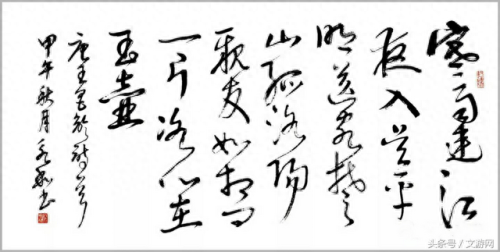 寒雨連江
夜入吴平
明送客楚
山孤洛陽
親友如相问
一片冰心在
玉壺
唐王昌龄诗一首
甲午秋月书
头条号／文游网